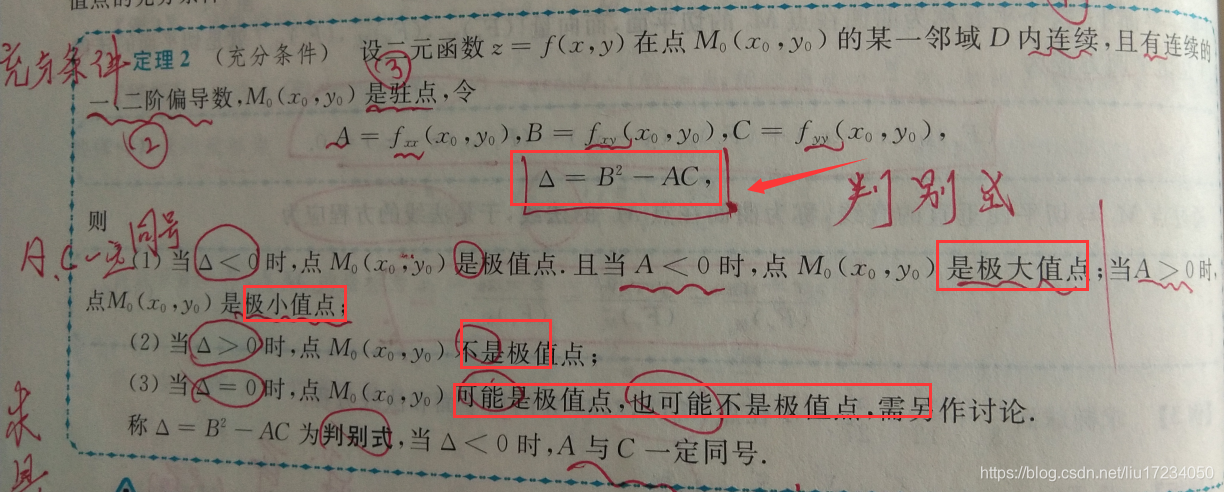 值点的充分条件
充分条件
定理2 (充分条件) 设二元函数 z = f(x,y) 在点 M₀(x₀,y₀) 的某一邻域 D 内连续,且有连续的
③
一、二阶偏导数,M₀(x₀,y₀) 是驻点,令
②
A = fₓₓ(x₀,y₀),B = fₓᵧ(x₀,y₀),C = fᵧᵧ(x₀,y₀),
Δ = B² − AC,
判别式
则
A、C一定同号
(1) 当 Δ < 0 时,点 M₀(x₀,y₀) 是极值点.且当 A < 0 时,点 M₀(x₀,y₀) 是极大值点;当 A > 0 时,
点M₀(x₀,y₀) 是极小值点;
(2) 当 Δ > 0 时,点 M₀(x₀,y₀) 不是极值点;
(3) 当 Δ = 0 时,点 M₀(x₀,y₀) 可能是极值点,也可能不是极值点,需另作讨论.
称 Δ = B² − AC 为判别式,当 Δ < 0 时,A 与 C 一定同号.
求
https://blog.csdn.net/liu17234050